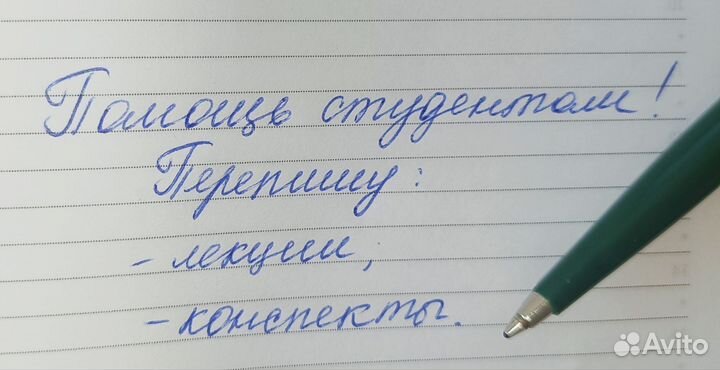 Помощь студентам!
Перепишу:
- лекции;
- конспекты.
Avito